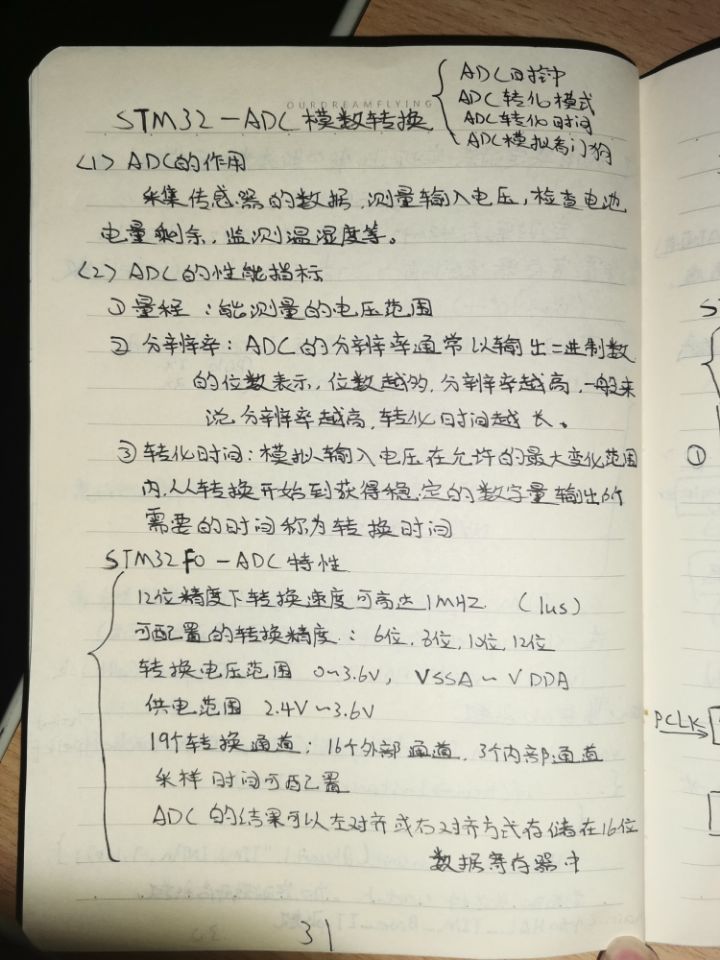 OURDREAMFLYING
STM32-ADC模数转换
ADC时控中
ADC转化模式
ADC转化时间
ADC模拟看门狗
(1) ADC的作用
采集传感器的数据,测量输入电压,检查电池
电量剩余,监测温湿度等。
(2) ADC的性能指标
①量程:能测量的电压范围
②分辨率:ADC的分辨率通常以输出二进制数
的位数表示,位数越多,分辨率越高,一般来
说分辨率越高,转化时间越长。
③转化时间:模拟输入电压在允许的最大变化范围
内,从转换开始到获得稳定的数字量输出所
需要的时间称为转换时间
STM32F0-ADC特性
12位精度下转换速度可高达1MHZ (1us)
可配置的转换精度:6位,8位,10位,12位
转换电压范围 0~3.6V,VSSA~VDDA
供电范围 2.4V~3.6V
19个转换通道:16个外部通道,3个内部通道
采样时间可配置
ADC的结果可以左对齐或右对齐方式存储在16位
数据寄存器中
31
①
PCLK